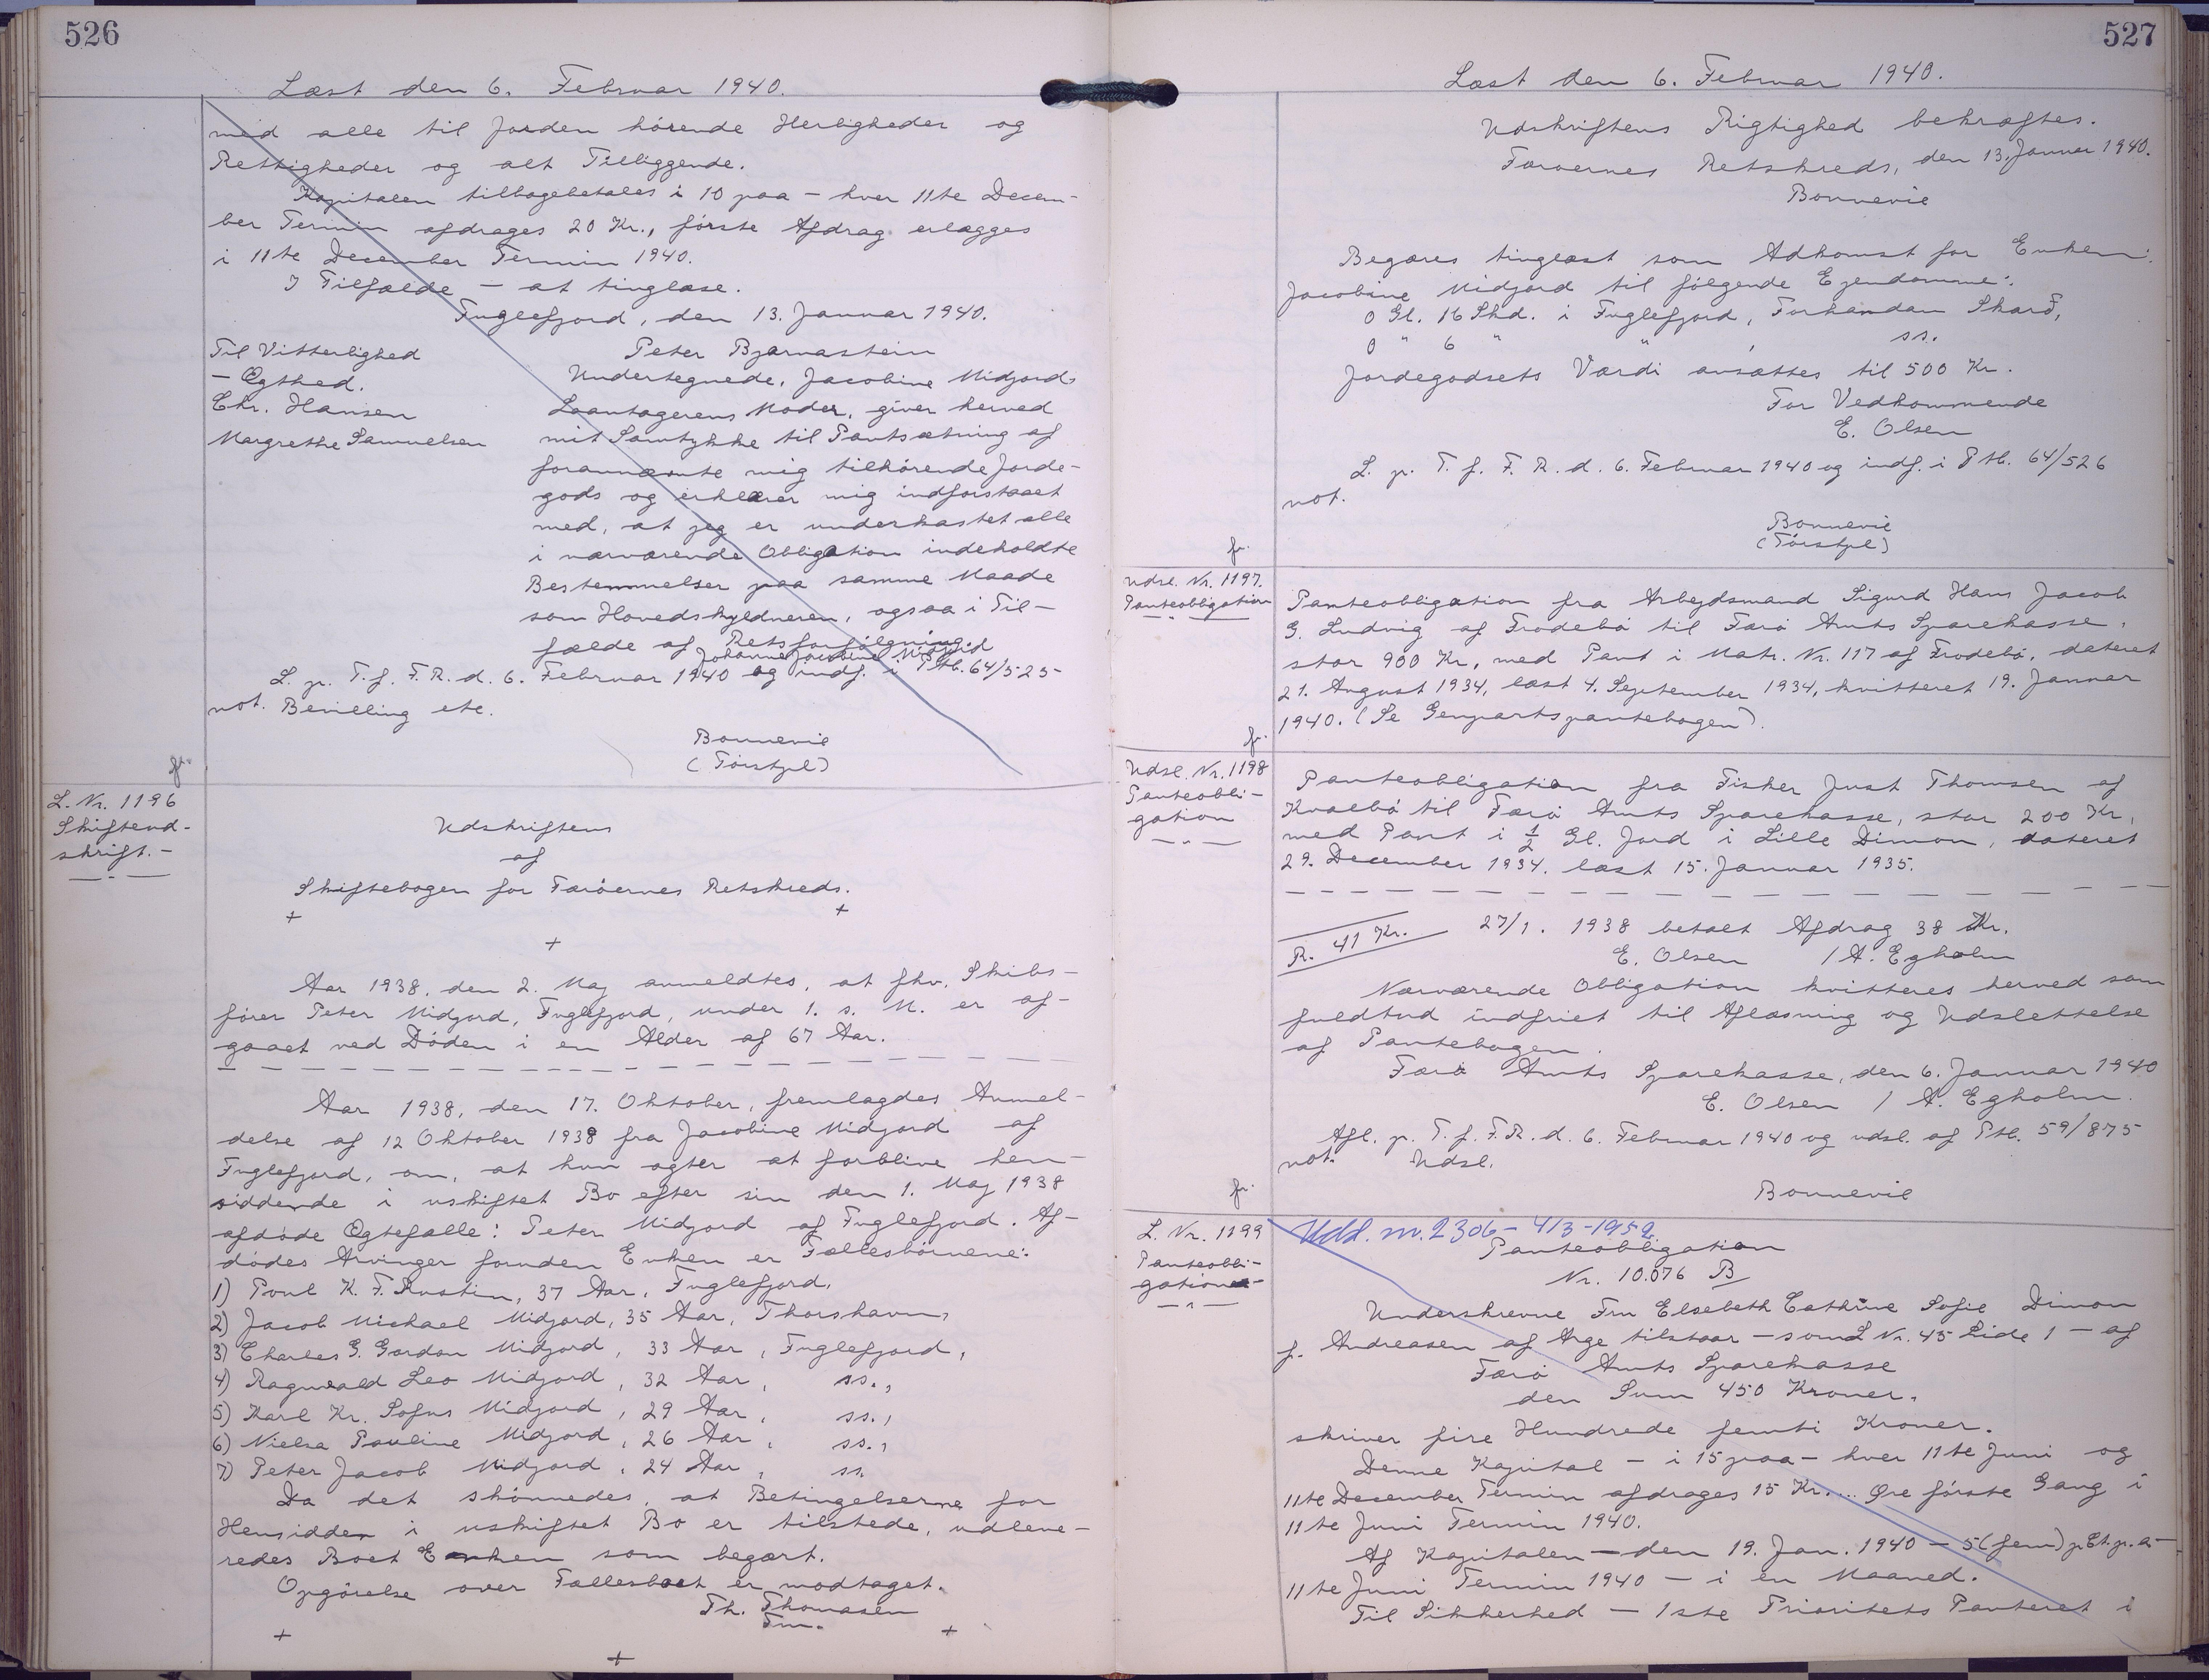 526
Læst den 6. Februar 1940.
med alle til Jorden hörende Herligheder og
Rettigheder og alt Tilliggende.
Kapitalen tilbagebetales i 10 paa - hver 11te Decem-
ber Termin afdrages 20 Kr., förste Afdrag erlægges
i 11te December Termin 1940.
I Tilfælde - at tinglæse.
Fuglefjord, den 13. Januar 1940.
Til Vitterlighed
- Ægthed.
Chr. Hansen
Margrethe Samuelsen
Peter Bjarnastein
Undertegnede, Jacobine Midjord,
Laantagerens Moder, giver herved
mit Samtykke til Pantsætning af
forannævnte mig tilhörende Jorde-
gods og erklærer mig indforstaaet
med, at jeg er underkastet alle
i nærværende Obligation indeholdte
Bestemmelser paa samme Maade
som Hovedskyldneren, ogsaa i Til-
fælde af Retsforfölgning.
Johanne Jacobine Midjord
L. p. T. f. F. R. d. 6. Februar 1940 og indf. i Ptb. 64/525
not. Bevilling etc.
Bonnevie
(Förstful)
fr.
L. Nr. 1196
Skifteud-
skrift.-
Udskriftens
af
Skiftebogen for Færöernes Retskreds.
+ +
+
Aar 1938, den 2. Maj anmeldtes, at fhv. Skibs-
förer Peter Midjord, Fuglefjord, under 1. s. M. er af-
gaaet ved Döden i en Alder af 67 Aar.
Aar 1938, den 17. Oktober, fremlagdes Anmel-
delse af 12 Oktober 1938 fra Jacobine Midjord af
Fuglefjord, om, at hun agter at forblive hen-
siddende i uskiftet Bo efter sin den 1. Maj 1938
afdöde Ægtefælle: Peter Midjord af Fuglefjord. Af-
dödes Arvinger foruden Enken er Fællesbörnene:
1) Poul K. F. Rustin, 37 Aar, Fuglefjord,
2) Jacob Michael Midjord, 35 Aar, Thorshavn,
3) Charles G. Gordon Midjord, 33 Aar, Fuglefjord,
4) Ragnvald Leo Midjord, 32 Aar, ss.,
5) Karl Kr. Sofus Midjord, 29 Aar, ss.,
6) Nielsa Pauline Midjord, 26 Aar, ss.,
7) Peter Jacob Midjord, 24 Aar, ss.
Da det skönnedes, at Betingelserne for
Hensidden i uskiftet Bo er tilstede, udleve-
redes Boet Enken som begært.
Opgörelse over Fællesboet er modtaget.
Th. Thomasen
Fm.
+ +
+
527
Læst den 6. Februar 1940.
Udskriftens Rigtighed bekræftes.
Færøernes Retskreds, den 13. Januar 1940.
Bonnevie
Begæres tinglæst som Adkomst for Enken:
Jacobine Midjord til fölgende Ejendomme:
0 Gl. 16 Skd. i Fuglefjord, Forhandan Skarð,
0 " 6 " " , ss.
Jordegodsets Værdi ansættes til 500 Kr.
For Vedkommende
E. Olsen
L. p. T. f. F. R. d. 6. Februar 1940 og indf. i Ptb. 64/526
not.
Bonnevie
(Förstful)
fr.
Udsl. Nr. 1197.
Panteobligation
Panteobligation fra Arbejdsmand Sigurd Hans Jacob
G. Ludvig af Frodebö til Færö Amts Sparekasse,
stor 900 Kr, med Pant i Matr. Nr. 117 af Frodebö, dateret
21. August 1934, læst 4. September 1934, kvitteret 19. Januar
1940. (Se Genpartspantebogen).
fr.
Udsl. Nr. 1198
Panteobli-
gation
Panteobligation fra Fisker Just Thomsen af
Kvalbö til Færö Amts Sparekasse, stor 200 Kr,
med Pant i 1/2 Gl. Jord i Lille Dimon, dateret
29. December 1934. læst 15. Januar 1935.
R. 41 Kr.
27/1. 1938 betalt Afdrag 38 Kr.
E. Olsen / A. Egholm
Nærværende Obligation kvitteres herved som
fuldtud indfriet til Aflæsning og Udslettelse
af Pantebogen.
Færö Amts Sparekasse, den 6. Januar 1940
E. Olsen / A. Egholm.
Afl. p. T. f. F.R. d. 6. Februar 1940 og udsl. af Ptb. 59/875
not. Udsl.
Bonnevie
fr.
L. Nr. 1199
Panteobli-
gation
Udsl. nr. 2306 - 4/3-1952.
Panteobligation
Nr. 10.076 B
Underskrevne Fru Elsebeth Cathrine Sofie Dimon
f. Andreasen af Arge tilstaar - som L Nr. 45 Side 1 - af
Færö Amts Sparekasse
den Sum 450 Kroner,
skriver fire Hundrede femti Kroner.
Denne Kapital - i 15 paa - hver 11te Juni og
11te December Termin afdrages 15 Kr. ... Øre förste Gang i
11te Juni Termin 1940.
Af Kapitalen - den 19. Jan. 1940 - 5 (fem) p.Ct. p. a. -
11te Juni Termin 1940 - i en Maaned.
Til Sikkerhed - 1ste Prioritets Panteret i